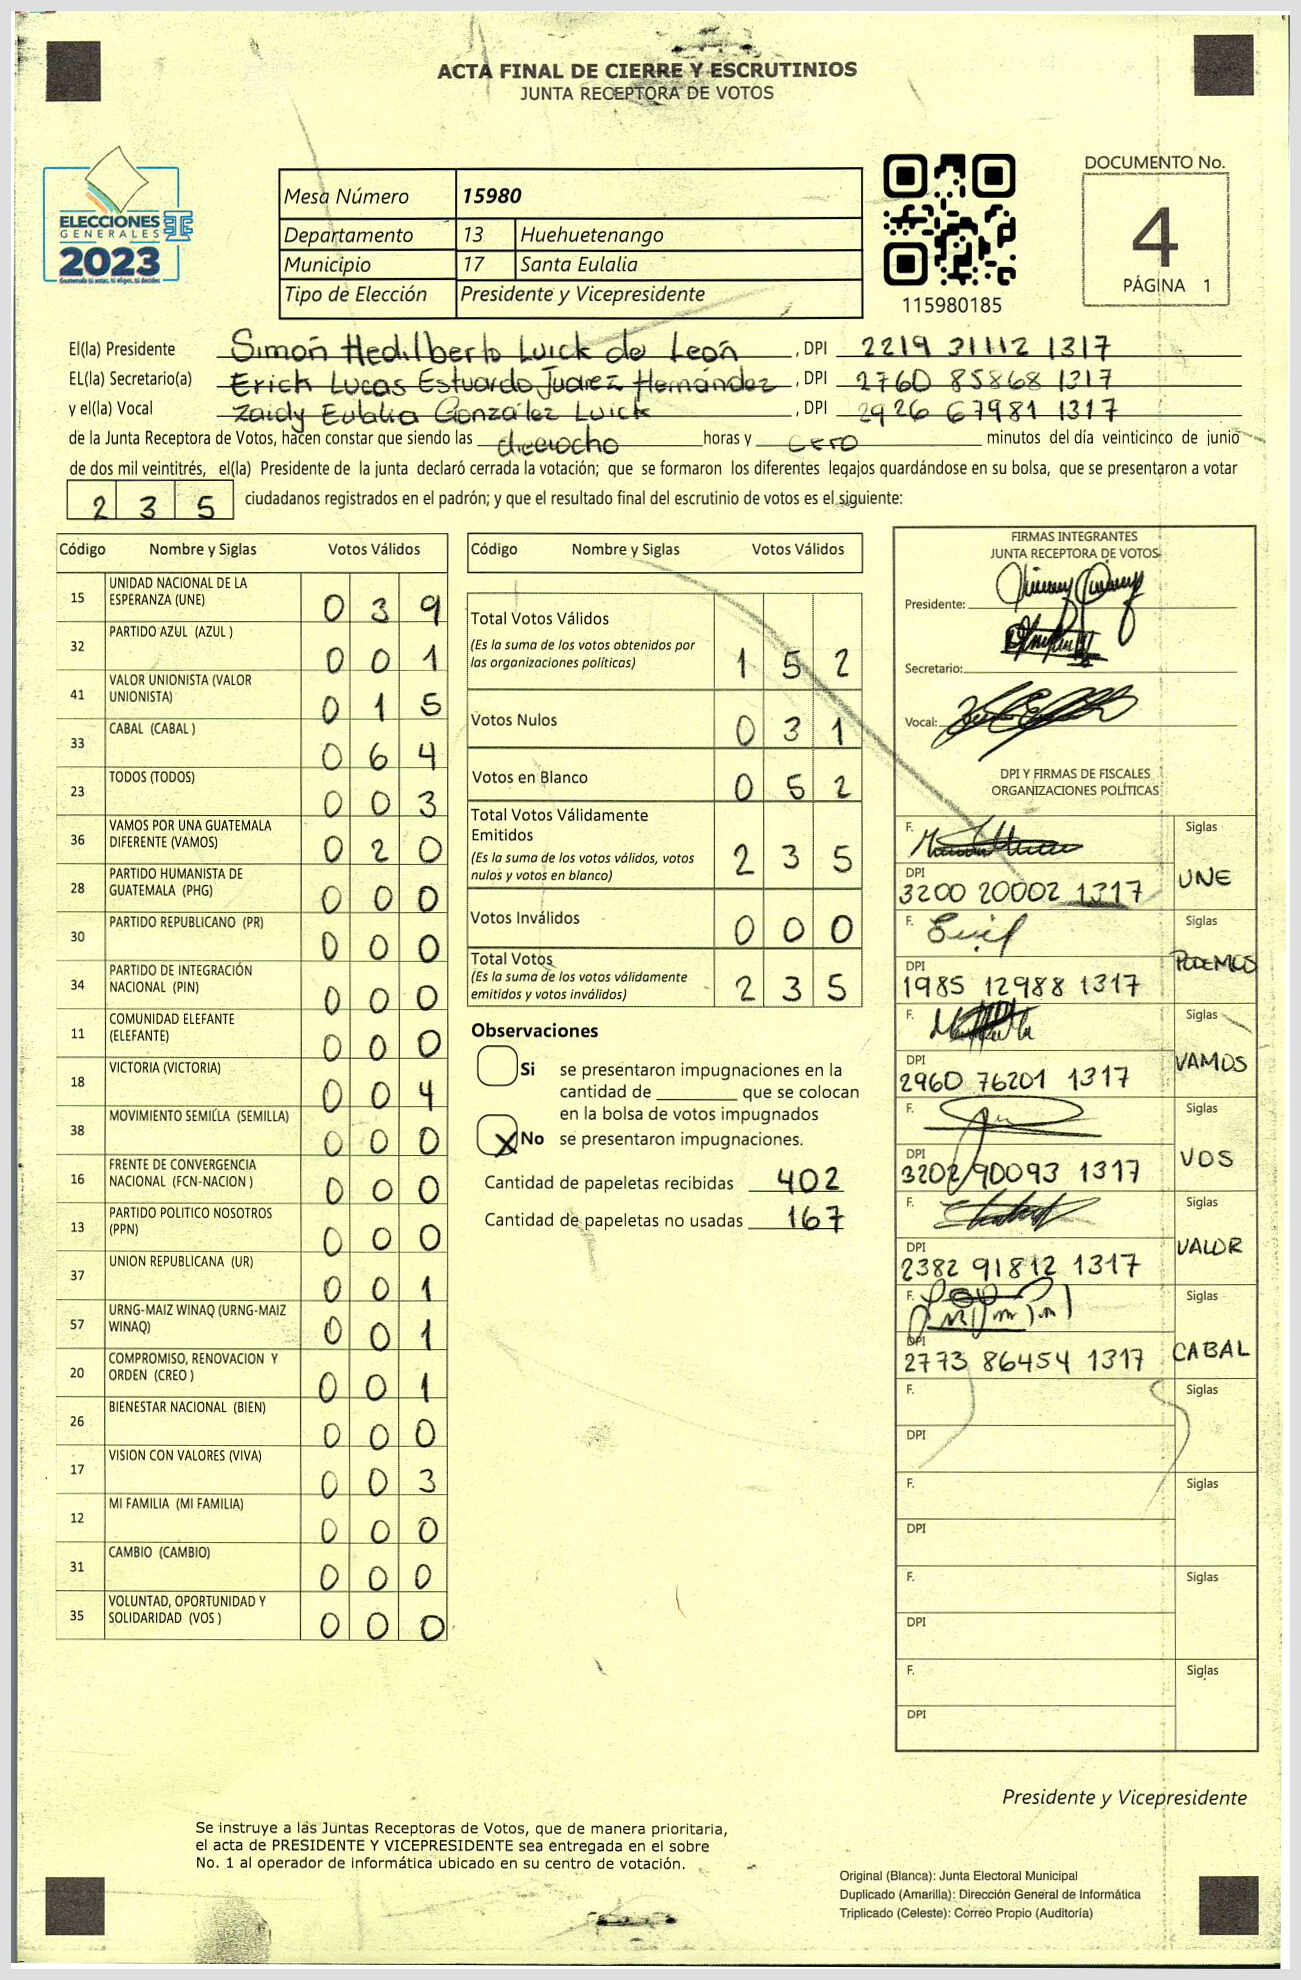 ACTA FINAL DE CIERRE Y ESCRUTINIOS
JUNTA RECEPTORA DE VOTOS
ELECCIONES
GENERALES
2023
Mesa Número 15980
Departamento 13 Huehuetenango
Municipio 17 Santa Eulalia
Tipo de Elección Presidente y Vicepresidente
115980185
DOCUMENTO No.
4
PÁGINA 1
El(la) Presidente Simón Hedilberto Luick de León , DPI 2219 31112 1317
EL(la) Secretario(a) Erick Lucas Estuardo Juarez Hernández , DPI 2760 85868 1317
y el(la) Vocal Zaidy Eulalia González Luick , DPI 2926 67981 1317
de la Junta Receptora de Votos, hacen constar que siendo las dieciocho horas y cero minutos del día veinticinco de junio
de dos mil veintitrés, el(la) Presidente de la junta declaró cerrada la votación; que se formaron los diferentes legajos guardándose en su bolsa, que se presentaron a votar
2 3 5 ciudadanos registrados en el padrón; y que el resultado final del escrutinio de votos es el siguiente:
Código Nombre y Siglas Votos Válidos
15 UNIDAD NACIONAL DE LA
ESPERANZA (UNE) 0 3 9
32 PARTIDO AZUL (AZUL ) 0 0 1
41 VALOR UNIONISTA (VALOR
UNIONISTA) 0 1 5
33 CABAL (CABAL ) 0 6 4
23 TODOS (TODOS) 0 0 3
36 VAMOS POR UNA GUATEMALA
DIFERENTE (VAMOS) 0 2 0
28 PARTIDO HUMANISTA DE
GUATEMALA (PHG) 0 0 0
30 PARTIDO REPUBLICANO (PR) 0 0 0
34 PARTIDO DE INTEGRACIÓN
NACIONAL (PIN) 0 0 0
11 COMUNIDAD ELEFANTE
(ELEFANTE) 0 0 0
18 VICTORIA (VICTORIA) 0 0 4
38 MOVIMIENTO SEMILLA (SEMILLA) 0 0 0
16 FRENTE DE CONVERGENCIA
NACIONAL (FCN-NACION ) 0 0 0
13 PARTIDO POLITICO NOSOTROS
(PPN) 0 0 0
37 UNION REPUBLICANA (UR) 0 0 1
57 URNG-MAIZ WINAQ (URNG-MAIZ
WINAQ) 0 0 1
20 COMPROMISO, RENOVACION Y
ORDEN (CREO ) 0 0 1
26 BIENESTAR NACIONAL (BIEN) 0 0 0
17 VISION CON VALORES (VIVA) 0 0 3
12 MI FAMILIA (MI FAMILIA) 0 0 0
31 CAMBIO (CAMBIO) 0 0 0
35 VOLUNTAD, OPORTUNIDAD Y
SOLIDARIDAD (VOS ) 0 0 0
Código Nombre y Siglas Votos Válidos
Total Votos Válidos
(Es la suma de los votos obtenidos por
las organizaciones políticas) 1 5 2
Votos Nulos 0 3 1
Votos en Blanco 0 5 2
Total Votos Válidamente
Emitidos
(Es la suma de los votos válidos, votos
nulos y votos en blanco) 2 3 5
Votos Inválidos 0 0 0
Total Votos
(Es la suma de los votos válidamente
emitidos y votos inválidos) 2 3 5
Observaciones
Si se presentaron impugnaciones en la
cantidad de ________ que se colocan
en la bolsa de votos impugnados
X No se presentaron impugnaciones.
Cantidad de papeletas recibidas 402
Cantidad de papeletas no usadas 167
FIRMAS INTEGRANTES
JUNTA RECEPTORA DE VOTOS
Presidente:
Secretario:
Vocal:
DPI Y FIRMAS DE FISCALES
ORGANIZACIONES POLÍTICAS
F. Siglas
DPI UNE
3200 20002 1317
F. Siglas
DPI PODEMOS
1985 12988 1317
F. Siglas
DPI VAMOS
2960 76201 1317
F. Siglas
DPI VOS
3202 90093 1317
F. Siglas
DPI VALOR
2382 91812 1317
F. Siglas
DPI CABAL
2773 86454 1317
F. Siglas
DPI
F. Siglas
DPI
F. Siglas
DPI
F. Siglas
DPI
Presidente y Vicepresidente
Se instruye a las Juntas Receptoras de Votos, que de manera prioritaria,
el acta de PRESIDENTE Y VICEPRESIDENTE sea entregada en el sobre
No. 1 al operador de informática ubicado en su centro de votación.
Original (Blanca): Junta Electoral Municipal
Duplicado (Amarilla): Dirección General de Informática
Triplicado (Celeste): Correo Propio (Auditoría)